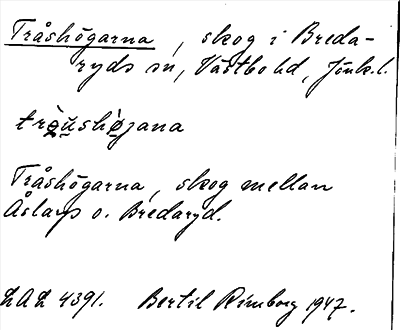 Tråshögarna, skog i Breda-
ryds sn, Västbo hd, Jönk.l.
trò̰ṵshø̀jana
Tråshögarna, skog mellan
Åslarp o. Bredaryd.
LAL 4391. Bertil Rimborg 1947.